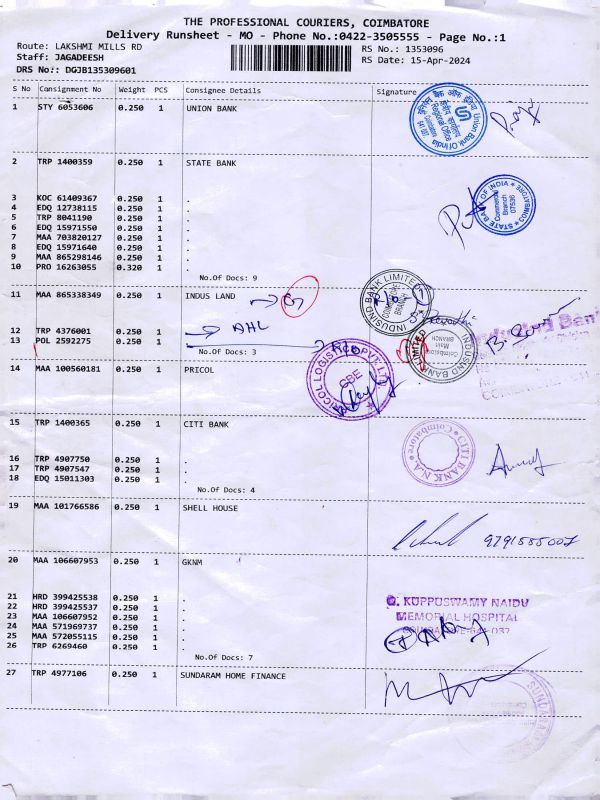 THE PROFESSIONAL COURIERS, COIMBATORE
Delivery Runsheet - MO - Phone No.:0422-3505555 - Page No.:1
Route: LAKSHMI MILLS RD
RS No.: 1353096
Staff: JAGADEESH
RS Date: 15-Apr-2024
DRS No.: DGJB135309601
S No Consignment No Weight PCS Consignee Details Signature
1 STY 6053606 0.250 1 UNION BANK
Union Bank Of India
Regional Office
2 TRP 1400359 0.250 1 STATE BANK
STATE BANK OF INDIA
Commercial
Branch
07536
COIMBATORE
3 KOC 61409367 0.250 1 .
4 EDQ 12738115 0.250 1 .
5 TRP 8041190 0.250 1 .
6 EDQ 15971550 0.250 1 .
7 MAA 703820127 0.250 1 .
8 EDQ 15971640 0.250 1 .
9 MAA 865298146 0.250 1 .
10 PRO 16263055 0.320 1 .
No.Of Docs: 9
11 MAA 865338349 0.250 1 INDUS LAND
INDUSIND BANK LIMITED
COIMBATORE
BRANCH
12 TRP 4376001 0.250 1 .
AHL
13 POL 2592275 0.250 1 .
No.Of Docs: 3
INDUSIND BANK LIMITED
Coimbatore
Main
BRANCH
IndusInd Bank
14 MAA 100560181 0.250 1 PRICOL
PRICOL LOGISTICS PVT. LTD.
CBE
15 TRP 1400365 0.250 1 CITI BANK
CITI BANK N.A.
Coimbatore
16 TRP 4907750 0.250 1 .
17 TRP 4907547 0.250 1 .
18 EDQ 15011303 0.250 1 .
No.Of Docs: 4
19 MAA 101766586 0.250 1 SHELL HOUSE
9791555007
20 MAA 106607953 0.250 1 GKNM
21 HRD 399425538 0.250 1 .
22 HRD 399425537 0.250 1 .
23 MAA 106607952 0.250 1 .
24 MAA 571969737 0.250 1 .
25 MAA 572055115 0.250 1 .
26 TRP 6269460 0.250 1 .
No.Of Docs: 7
G. KUPPUSWAMY NAIDU
MEMORIAL HOSPITAL
27 TRP 4977106 0.250 1 SUNDARAM HOME FINANCE
SUNDARAM